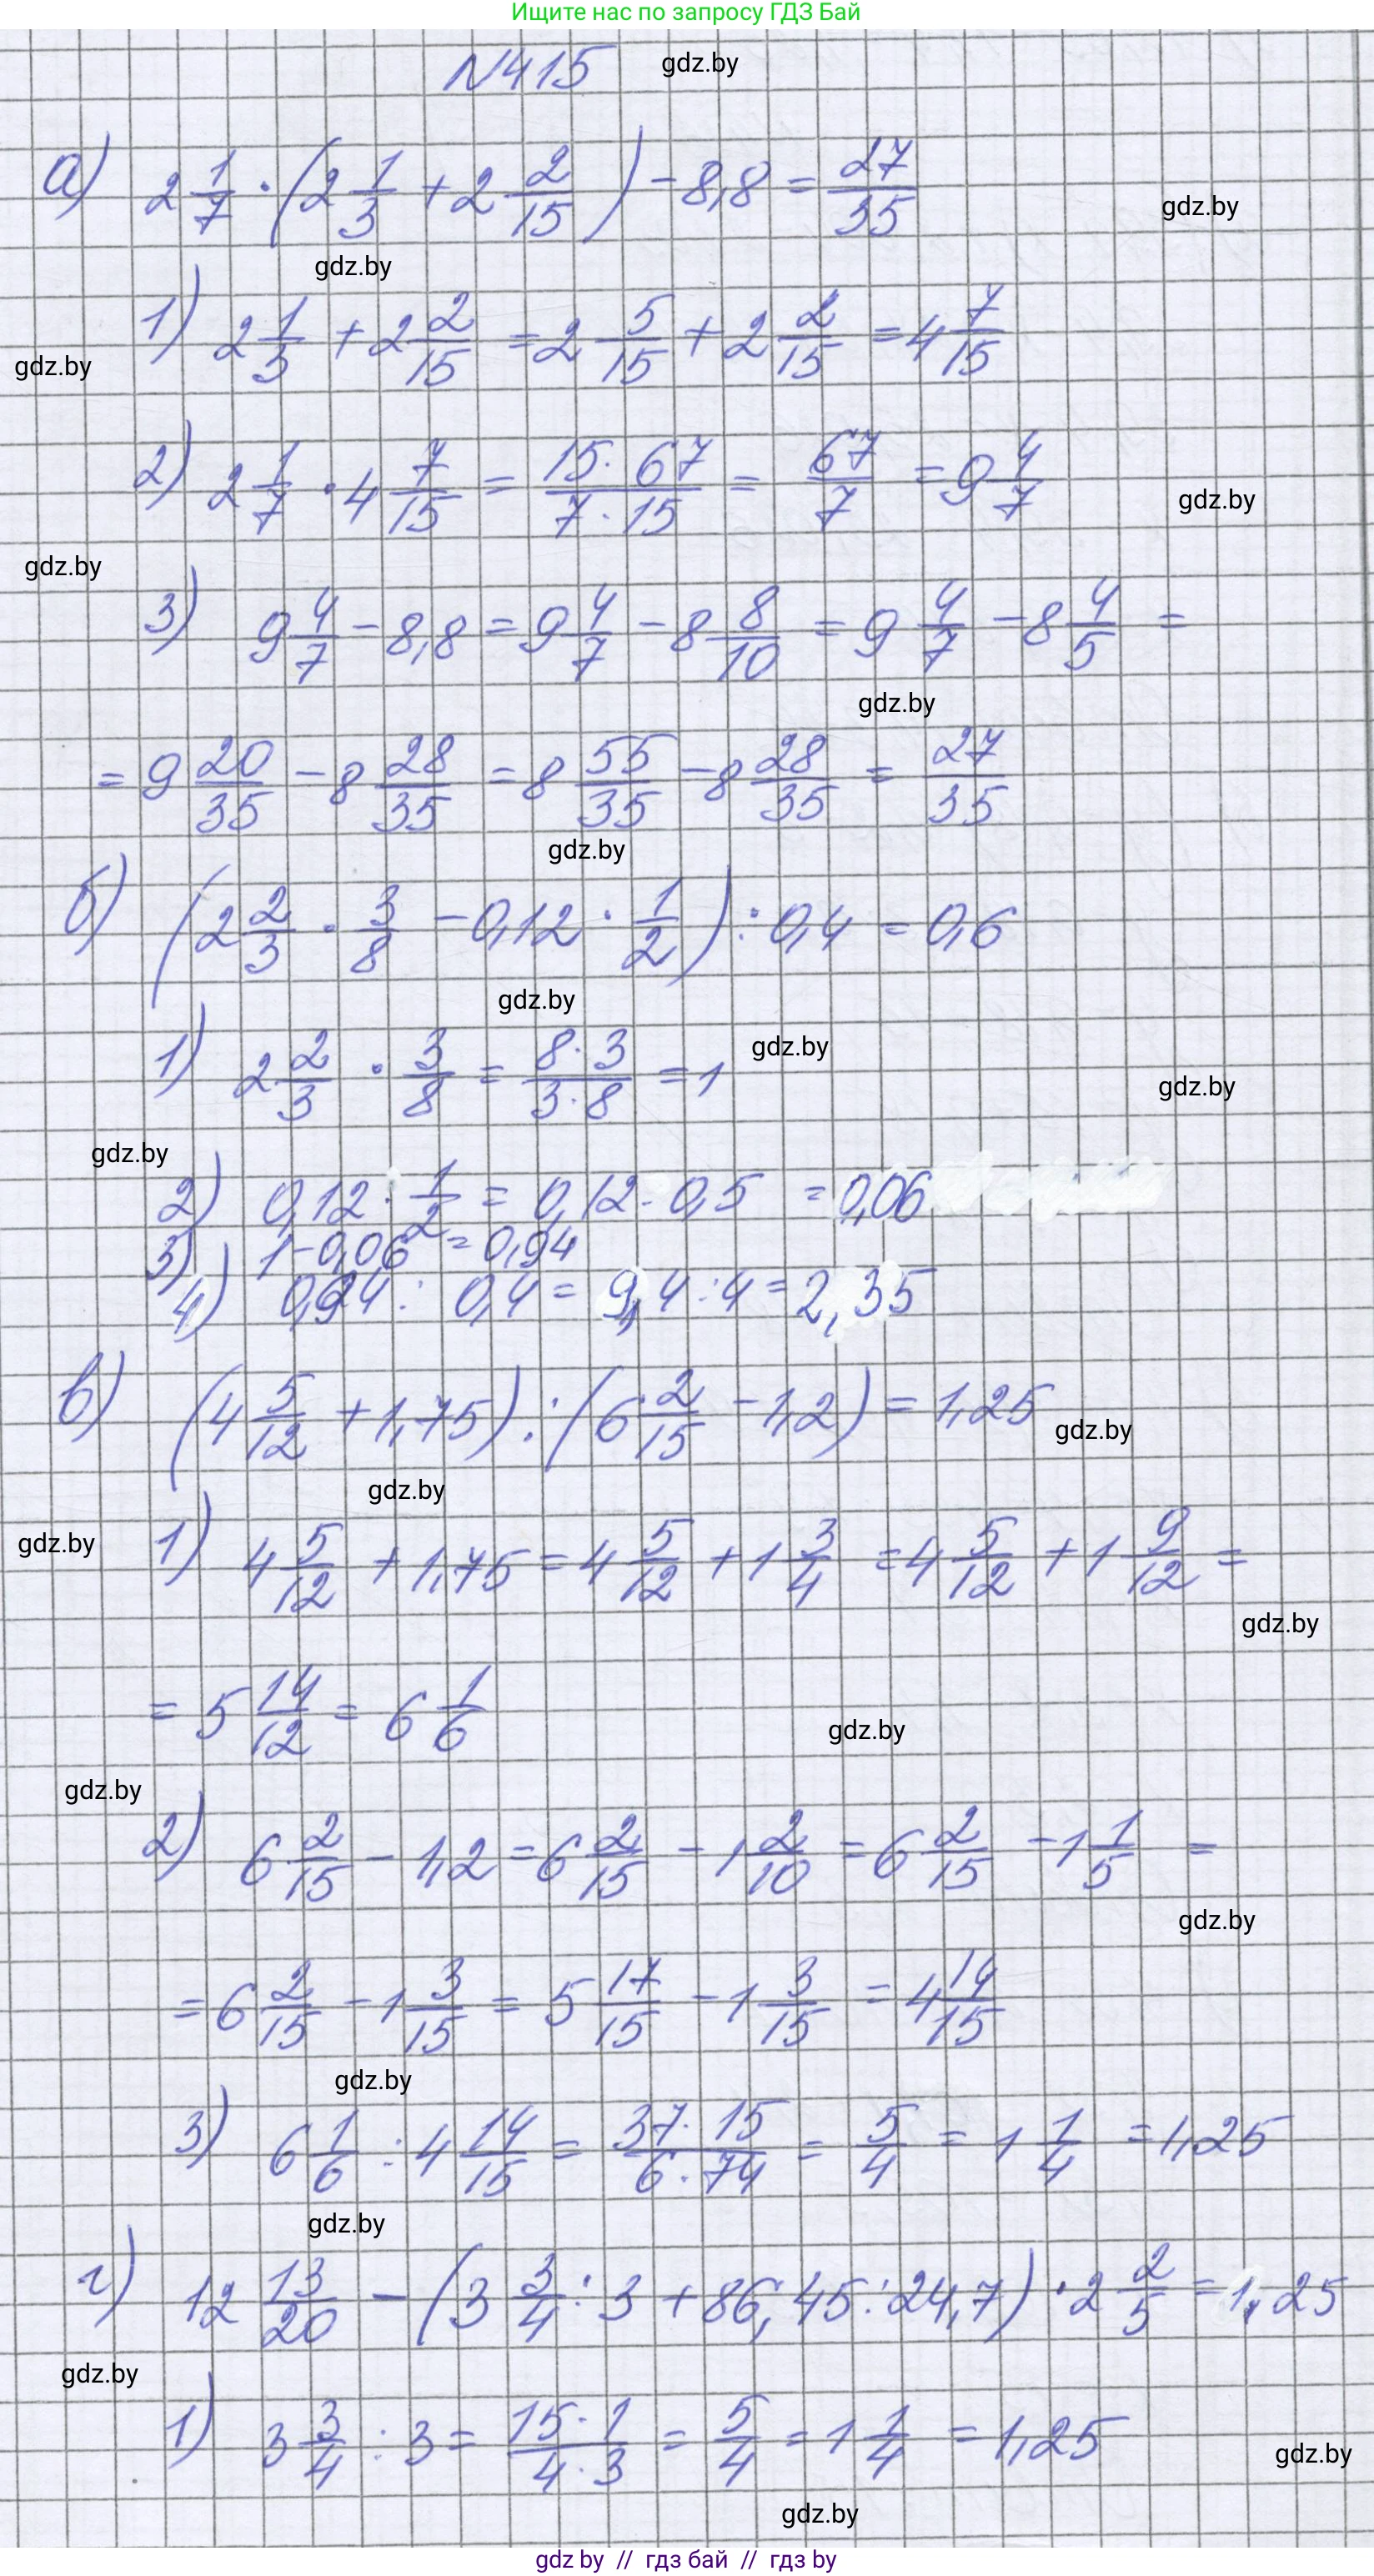 Ищите нас по запросу ГДЗ Бай
№415
gdz.by
а) 2 1/7 · (2 1/3 + 2 2/15) - 8,8 = 27/35
gdz.by
gdz.by
1) 2 1/3 + 2 2/15 = 2 5/15 + 2 2/15 = 4 7/15
gdz.by
2) 2 1/7 · 4 7/15 = 15·67/7·15 = 67/7 = 9 4/7
gdz.by
gdz.by
3) 9 4/7 - 8,8 = 9 4/7 - 8 8/10 = 9 4/7 - 8 4/5 =
gdz.by
= 9 20/35 - 8 28/35 = 8 55/35 - 8 28/35 = 27/35
gdz.by
б) (2 2/3 · 3/8 - 0,12 · 1/2) : 0,4 = 0,6
gdz.by
1) 2 2/3 · 3/8 = 8·3/3·8 = 1
gdz.by
gdz.by
gdz.by
2) 0,12 · 1/2 = 0,12 · 0,5 = 0,06
3) 1 - 0,06 = 0,94
4) 0,94 : 0,4 = 9,4 : 4 = 2,35
в) (4 5/12 + 1,75) : (6 2/15 - 1,2) = 1,25
gdz.by
gdz.by
gdz.by
1) 4 5/12 + 1,75 = 4 5/12 + 1 3/4 = 4 5/12 + 1 9/12 =
gdz.by
= 5 14/12 = 6 1/6
gdz.by
gdz.by
2) 6 2/15 - 1,2 = 6 2/15 - 1 2/10 = 6 2/15 - 1 1/5 =
gdz.by
= 6 2/15 - 1 3/15 = 5 17/15 - 1 3/15 = 4 14/15
gdz.by
3) 6 1/6 : 4 14/15 = 37·15/6·74 = 5/4 = 1 1/4 = 1,25
gdz.by
г) 12 13/20 - (3 3/4 : 3 + 86,45 : 24,7) · 2 2/5 = 1,25
gdz.by
1) 3 3/4 : 3 = 15·1/4·3 = 5/4 = 1 1/4 = 1,25
gdz.by
gdz.by
gdz by // гдз бай // гдз by